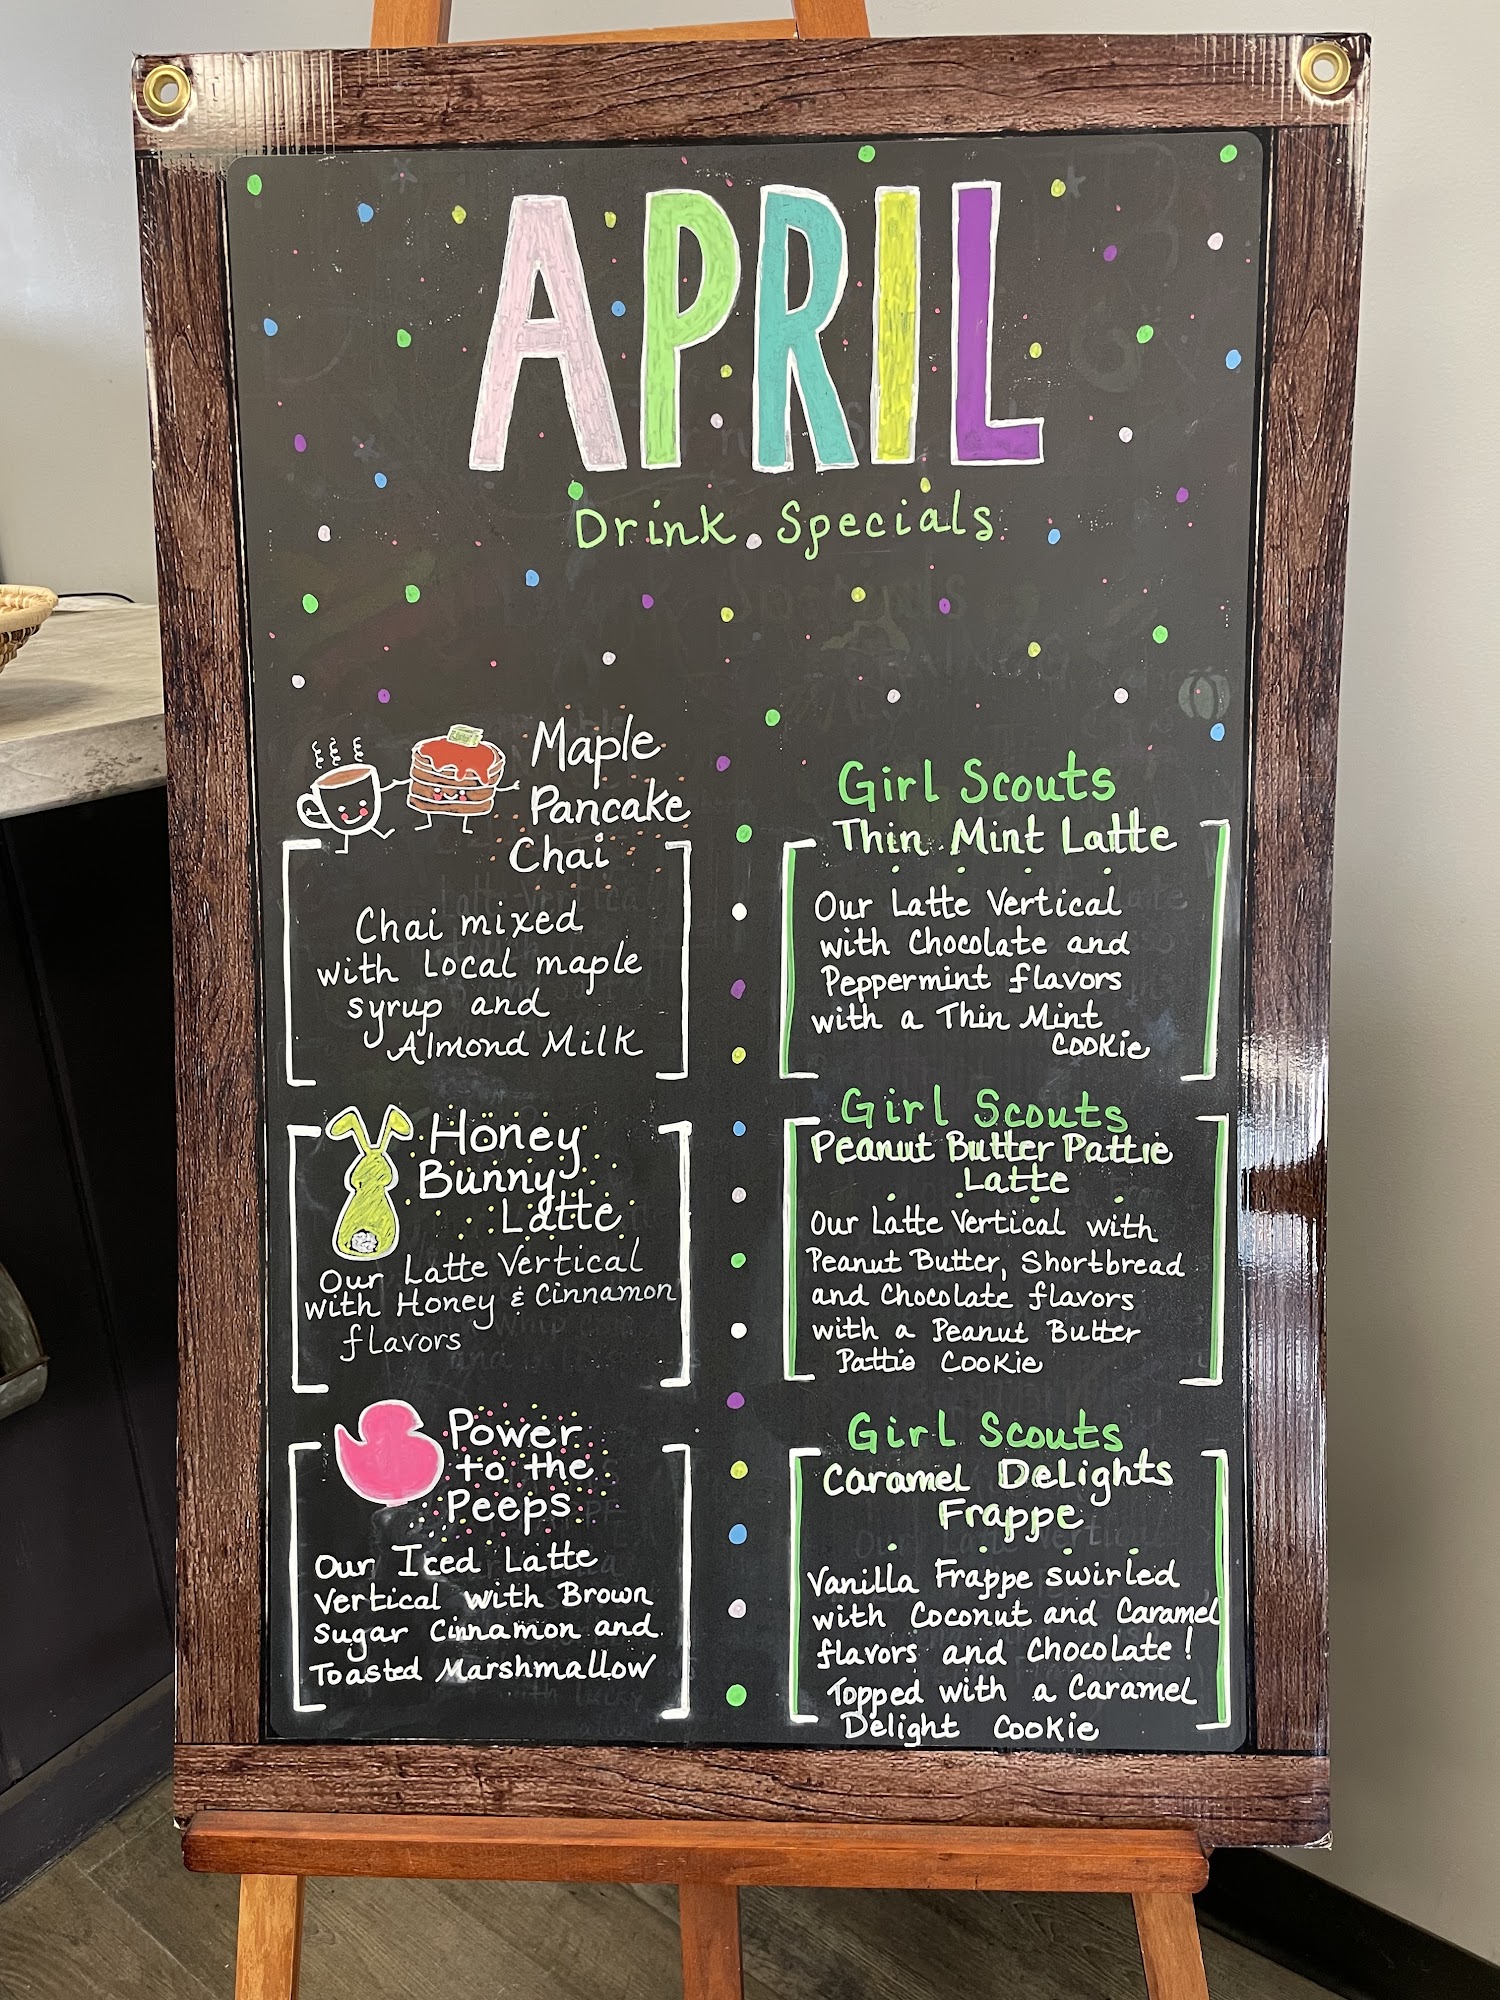 APRIL
Drink Specials
Maple
Pancake
Chai
Chai mixed
with Local maple
syrup and
Almond Milk
Honey
Bunny
Latte
Our Latte Vertical
with Honey & Cinnamon
flavors
Power
to the
Peeps
Our Iced Latte
Vertical with Brown
Sugar Cinnamon and
Toasted Marshmallow
Girl Scouts
Thin Mint Latte
Our Latte Vertical
with Chocolate and
Peppermint flavors
with a Thin Mint
Cookie
Girl Scouts
Peanut Butter Pattie
Latte
Our Latte Vertical with
Peanut Butter, Shortbread
and Chocolate flavors
with a Peanut Butter
Pattie Cookie
Girl Scouts
Caramel Delights
Frappe
Vanilla Frappe swirled
with Coconut and Caramel
flavors and Chocolate!
Topped with a Caramel
Delight Cookie